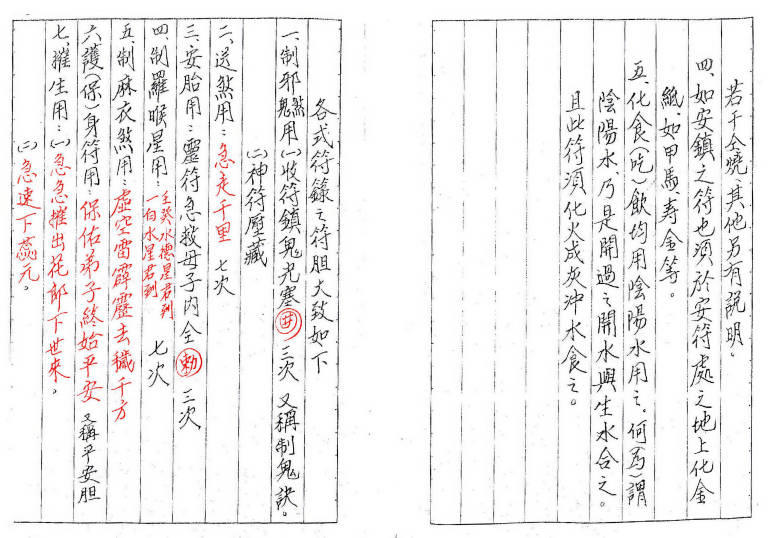 若干全燒、其他另有說明。
四、如安鎮之符也須於安符處之地上化金
紙、如甲馬、寿金等。
五、化食(吃)飲均用陰陽水用之。何(為)謂
陰陽水、乃是開過之開水與生水合之。
且此符須化火成灰沖水食之。
各式符籙之符胆大致如下
一、制邪鬼煞用(一)收符鎮鬼光塞 三次 又稱制鬼訣。
(二)神符壓藏
二、送煞用:急走千里 七次
三、安胎用:靈符急救母子內全(勅) 三次
四、制羅睺星用:壬癸水德星君到 一白水星君到 七次
五、制麻衣煞用:虛空雷霹靂去穢千方
六、護(保)身符用:保佑弟子終始平安 又稱平安胆
七、摧生用:(一)急急摧出花郎下世來。
(二)急速下蕊元。